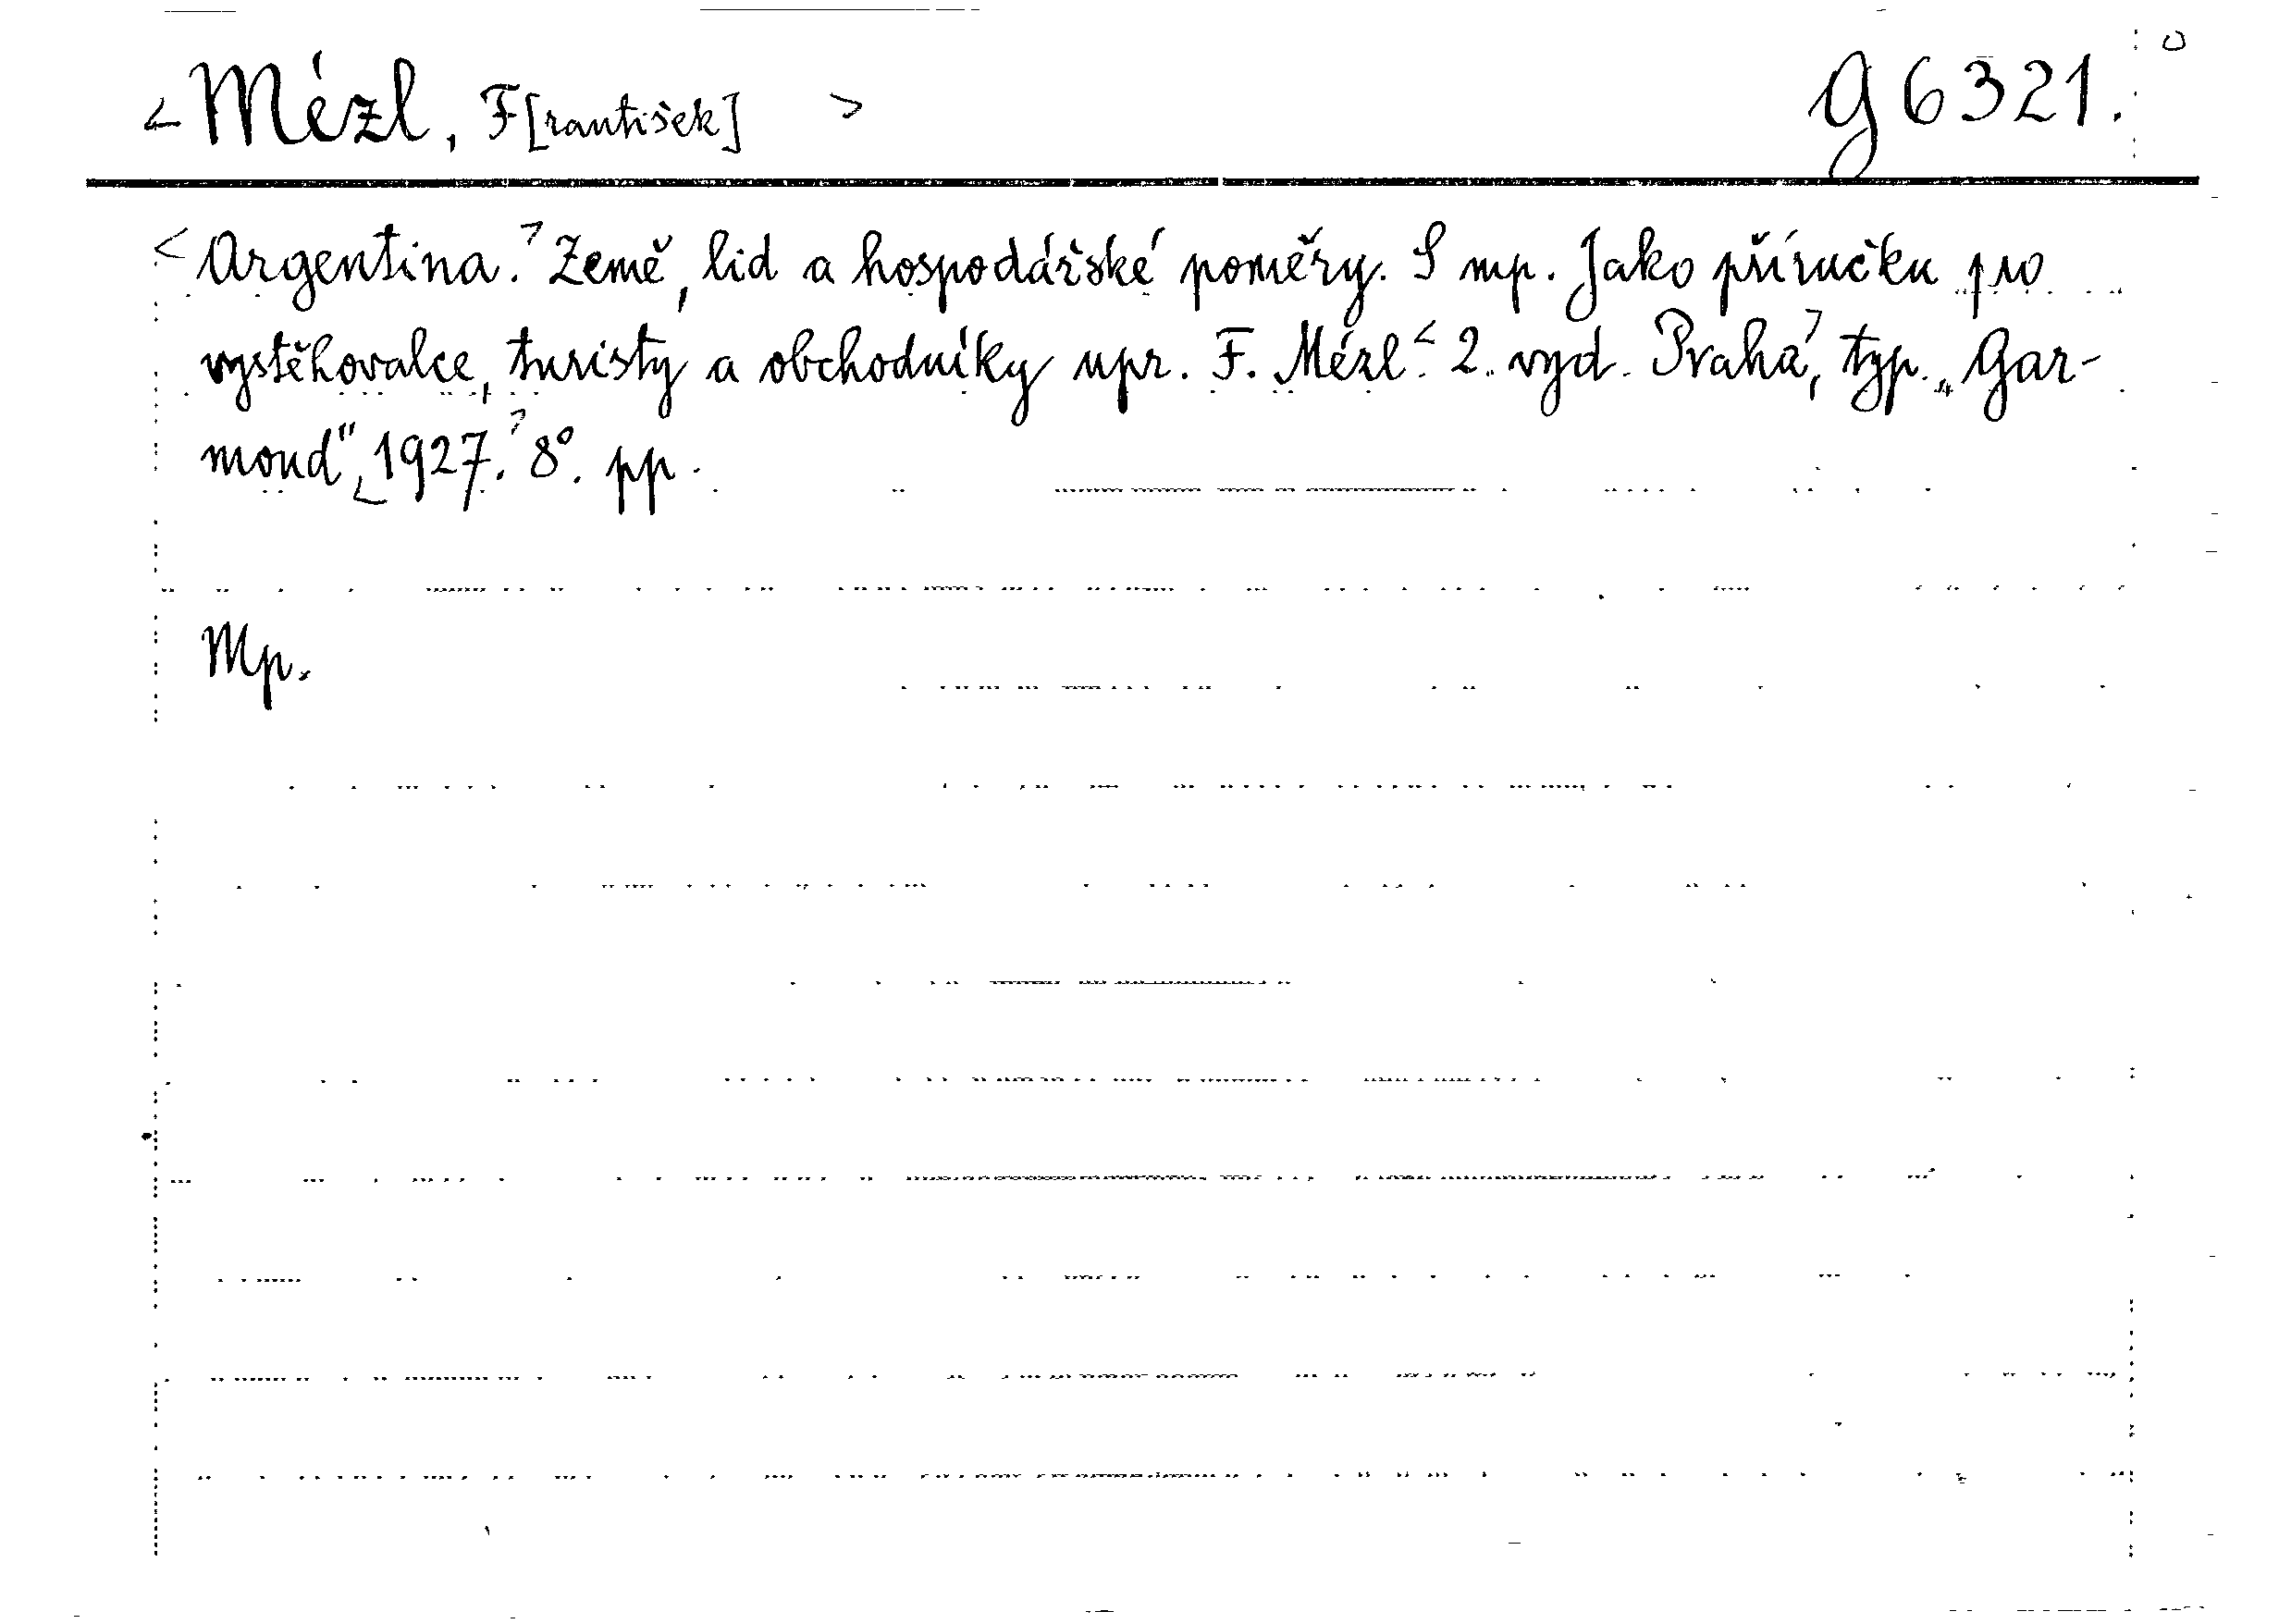 < Mézl, F[rantišek] > G 6321.
< Argentina.> Země, lid a hospodářské poměry. S mp. Jako příručku pro
vystěhovalce, turisty a obchodníky upr. F. Mézl.< 2. vyd. Praha>, typ. „Gar-
mond“, <1927.> 8°. pp.
Mp.